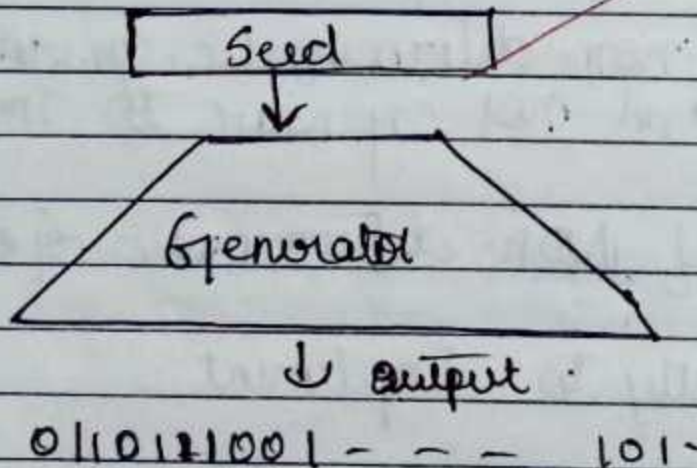 Seed
Generator
↓ output
0110121001 - - - 101-